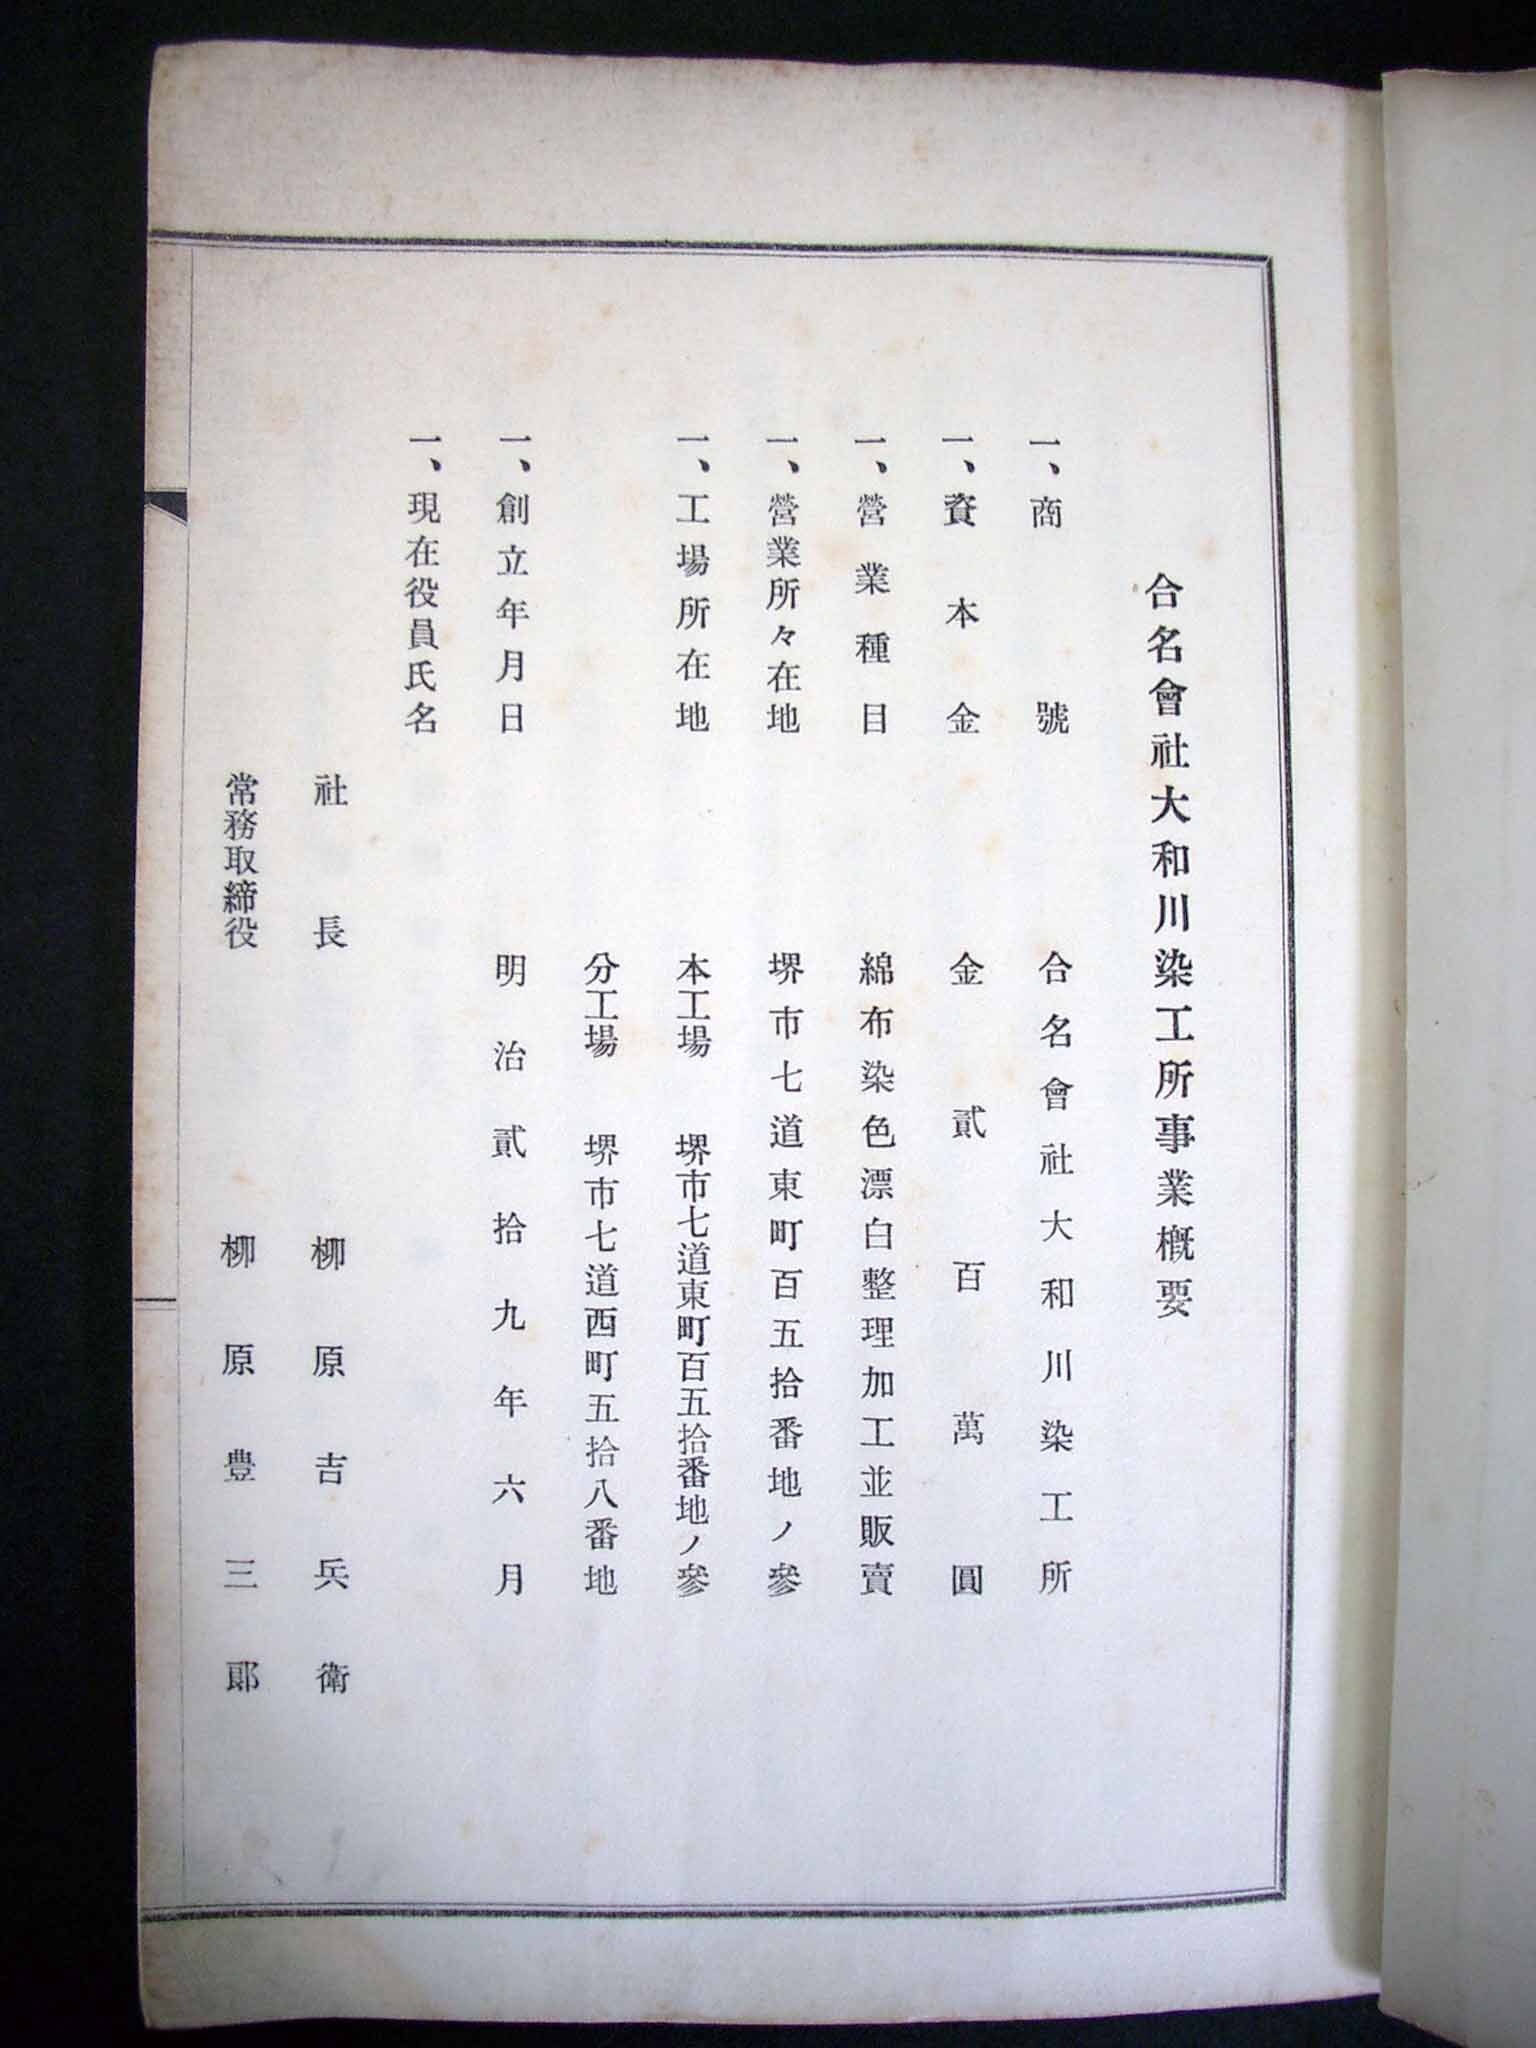 合名會社大和川染工所事業概要
一、商號 合名會社大和川染工所
一、資本金 金貳百萬圓
一、營業種目 綿布染色漂白整理加工並販賣
一、營業所々在地 堺市七道東町百五拾番地ノ參
一、工場所在地 本工場 堺市七道東町百五拾番地ノ參
分工場 堺市七道西町五拾八番地
一、創立年月日 明治貳拾九年六月
一、現在役員氏名
社長 柳原吉兵衛
常務取締役 柳原豊三郞